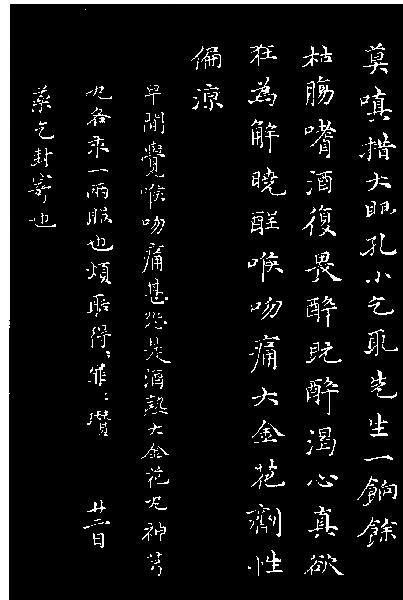 莫嗔措大眼孔小乞取先生一餉餘
枯腸嗜酒復畏醉既醉渴心真欲
狂為解曉酲喉吻痛大金花劑性
偏涼
早間覺喉吻痛甚恐是酒熱大金花丸神芎
丸各乘一兩服也煩聒得罪瓚 廿二日
藥乞封寄也